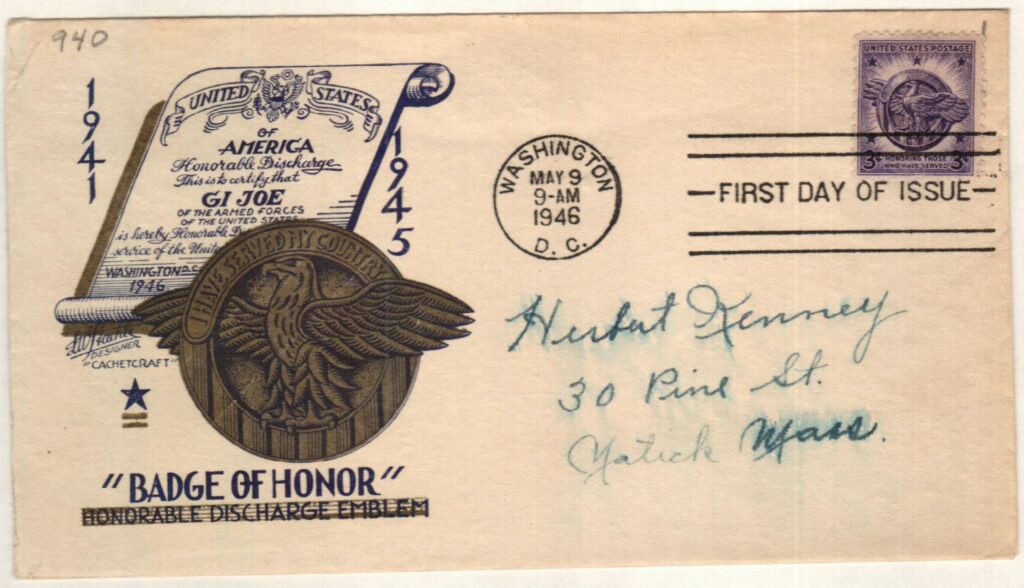 940
1941
1945
UNITED STATES
OF
AMERICA
Honorable Discharge
This is to certify that
GI JOE
OF THE ARMED FORCES
OF THE UNITED STATES
is hereby Honorable Di
service of the Unite
WASHINGTON D.C.
1946
DESIGNER
"CACHETCRAFT"
I HAVE SERVED MY COUNTRY
"BADGE OF HONOR"
HONORABLE DISCHARGE EMBLEM
WASHINGTON
MAY 9
9-AM
1946
D. C.
1
UNITED STATES POSTAGE
3¢ HONORING THOSE 3¢
WHO HAVE SERVED
FIRST DAY OF ISSUE
Herbert Kenney
30 Pine St.
Natick Mass.